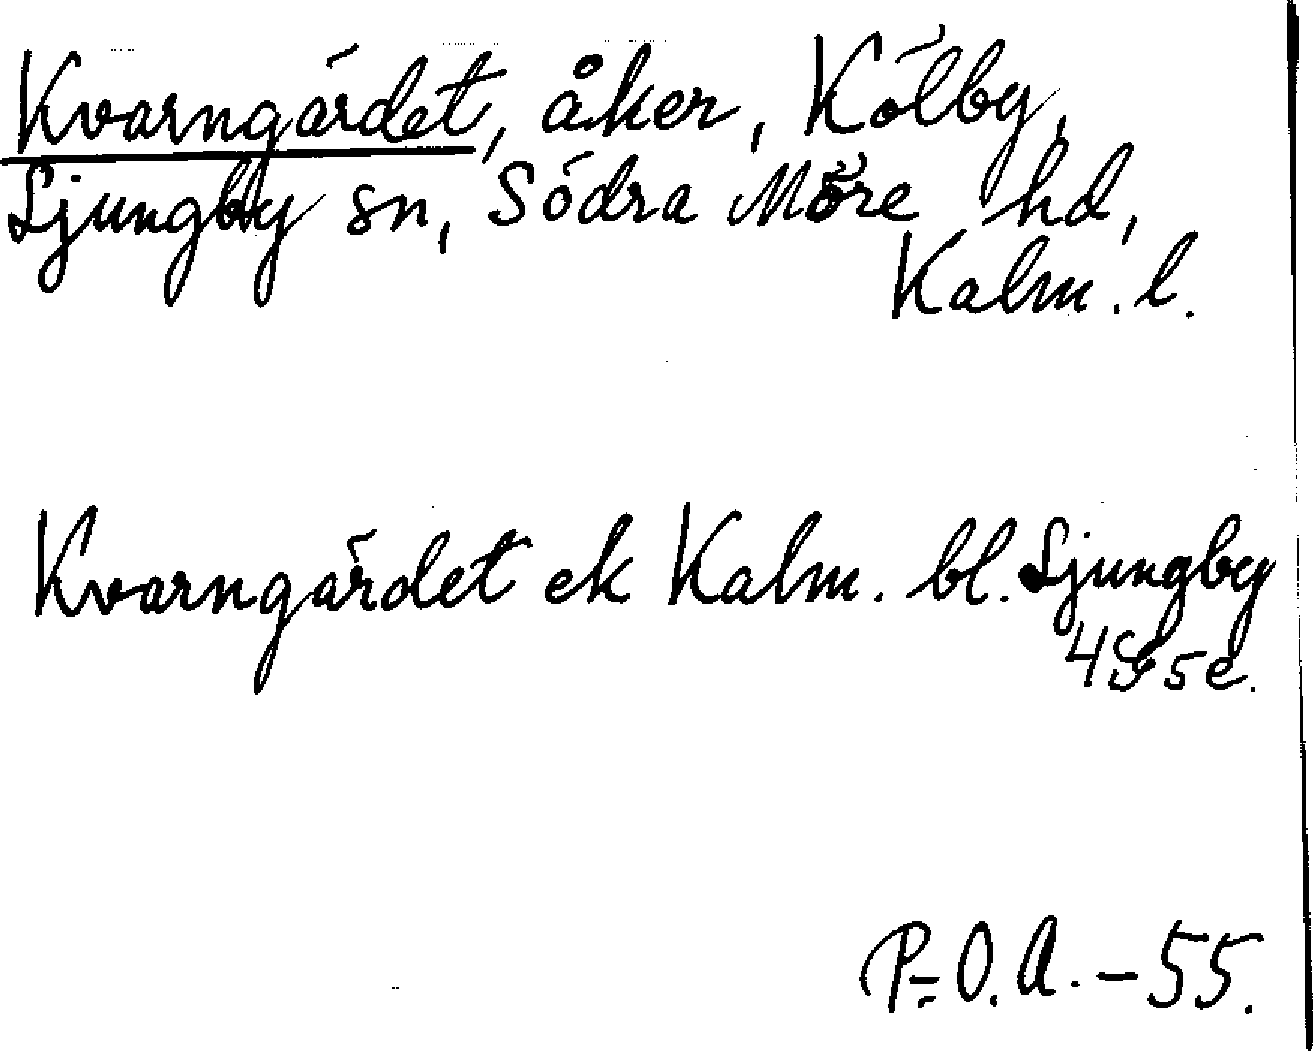 Kvarngärdet, åker, Kölby,
Ljungby sn, Södra Möre hd,
Kalm. l.
Kvarngärdet ek Kalm. bl. Ljungby
4G 5e.
P.-O. A. - 55.